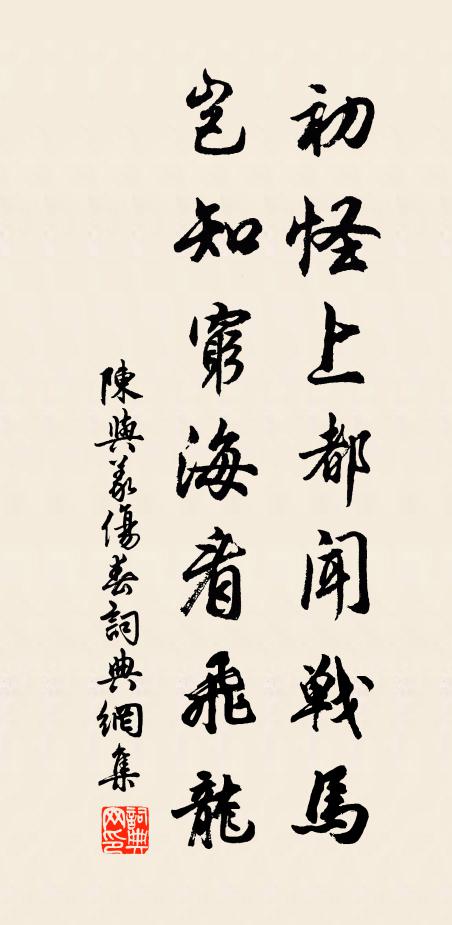 初怪上都聞戰馬
豈知窮海看飛龍
陳與義傷春詞典網集
詞典網印